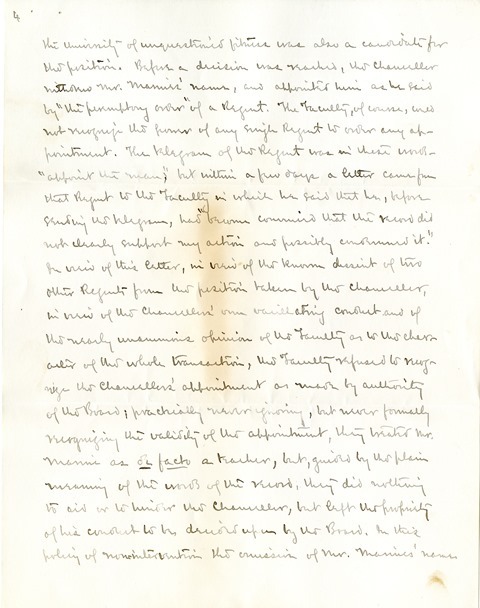 4
the University of unquestioned fitness was also a candidate for
the position. Before a decision was reached, the Chancellor
withdrew Mr. Mannie's name, and appointed him as he said
by "the peremptory order" of a Regent. The Faculty, of course, could
not recognize the power of any single Regent to order any ap-
pointment. The telegram of the Regent was in these words –
"appoint the man;" but within a few days a letter came from
that Regent to the Faculty in which he said that he, before
sending the telegram, had "become convinced that the record did
not clearly support my action and possibly condemned it."
In view of this letter, in view of the known dissent of two
other Regents from the position taken by the Chancellor,
in view of the Chancellor's own vacillating conduct and of
the nearly unanimous opinion of the Faculty as to the char-
acter of the whole transaction, the Faculty refused to recog-
nize the Chancellor's appointment as made by authority
of the Board; practically never ignoring, but never formally
recognizing the validity of the appointment, they treated Mr.
Mannie as de facto a teacher, but, guided by the plain
meaning of the words of the record, they did nothing
to aid or to hinder the Chancellor, but left the propriety
of his conduct to be decided upon by the Board. In this
policy of nonintervention the omission of Mr. Mannie's name